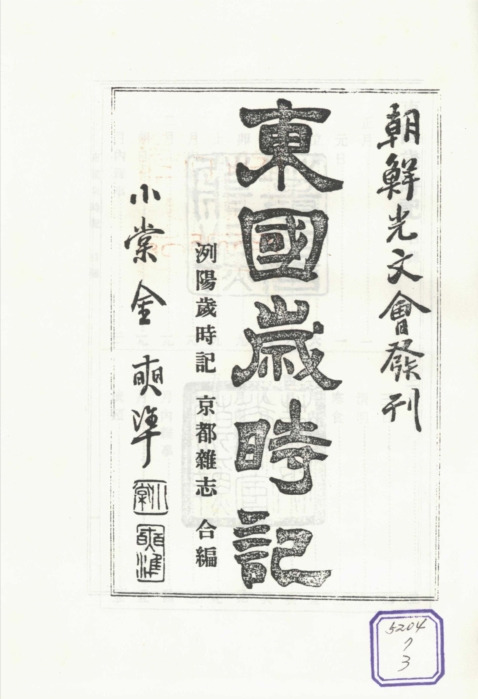 朝鮮光文會發刊
東國歲時記
洌陽歲時記 京都雜志 合編
小棠金奭準
小棠
奭準
5204
7
3